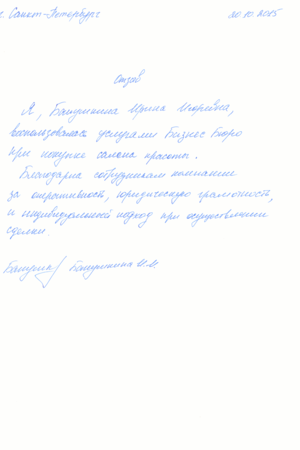 г. Санкт-Петербург 20.10.2015
отзыв
Я, Батушкина Ирина Игоревна,
воспользовалась услугами Бизнес Бюро
при покупке салона красоты.
Благодарна сотрудникам компании
за оперативность, юридическую грамотность,
и индивидуальный подход при осуществлении
сделки.
Батушкина И.И.